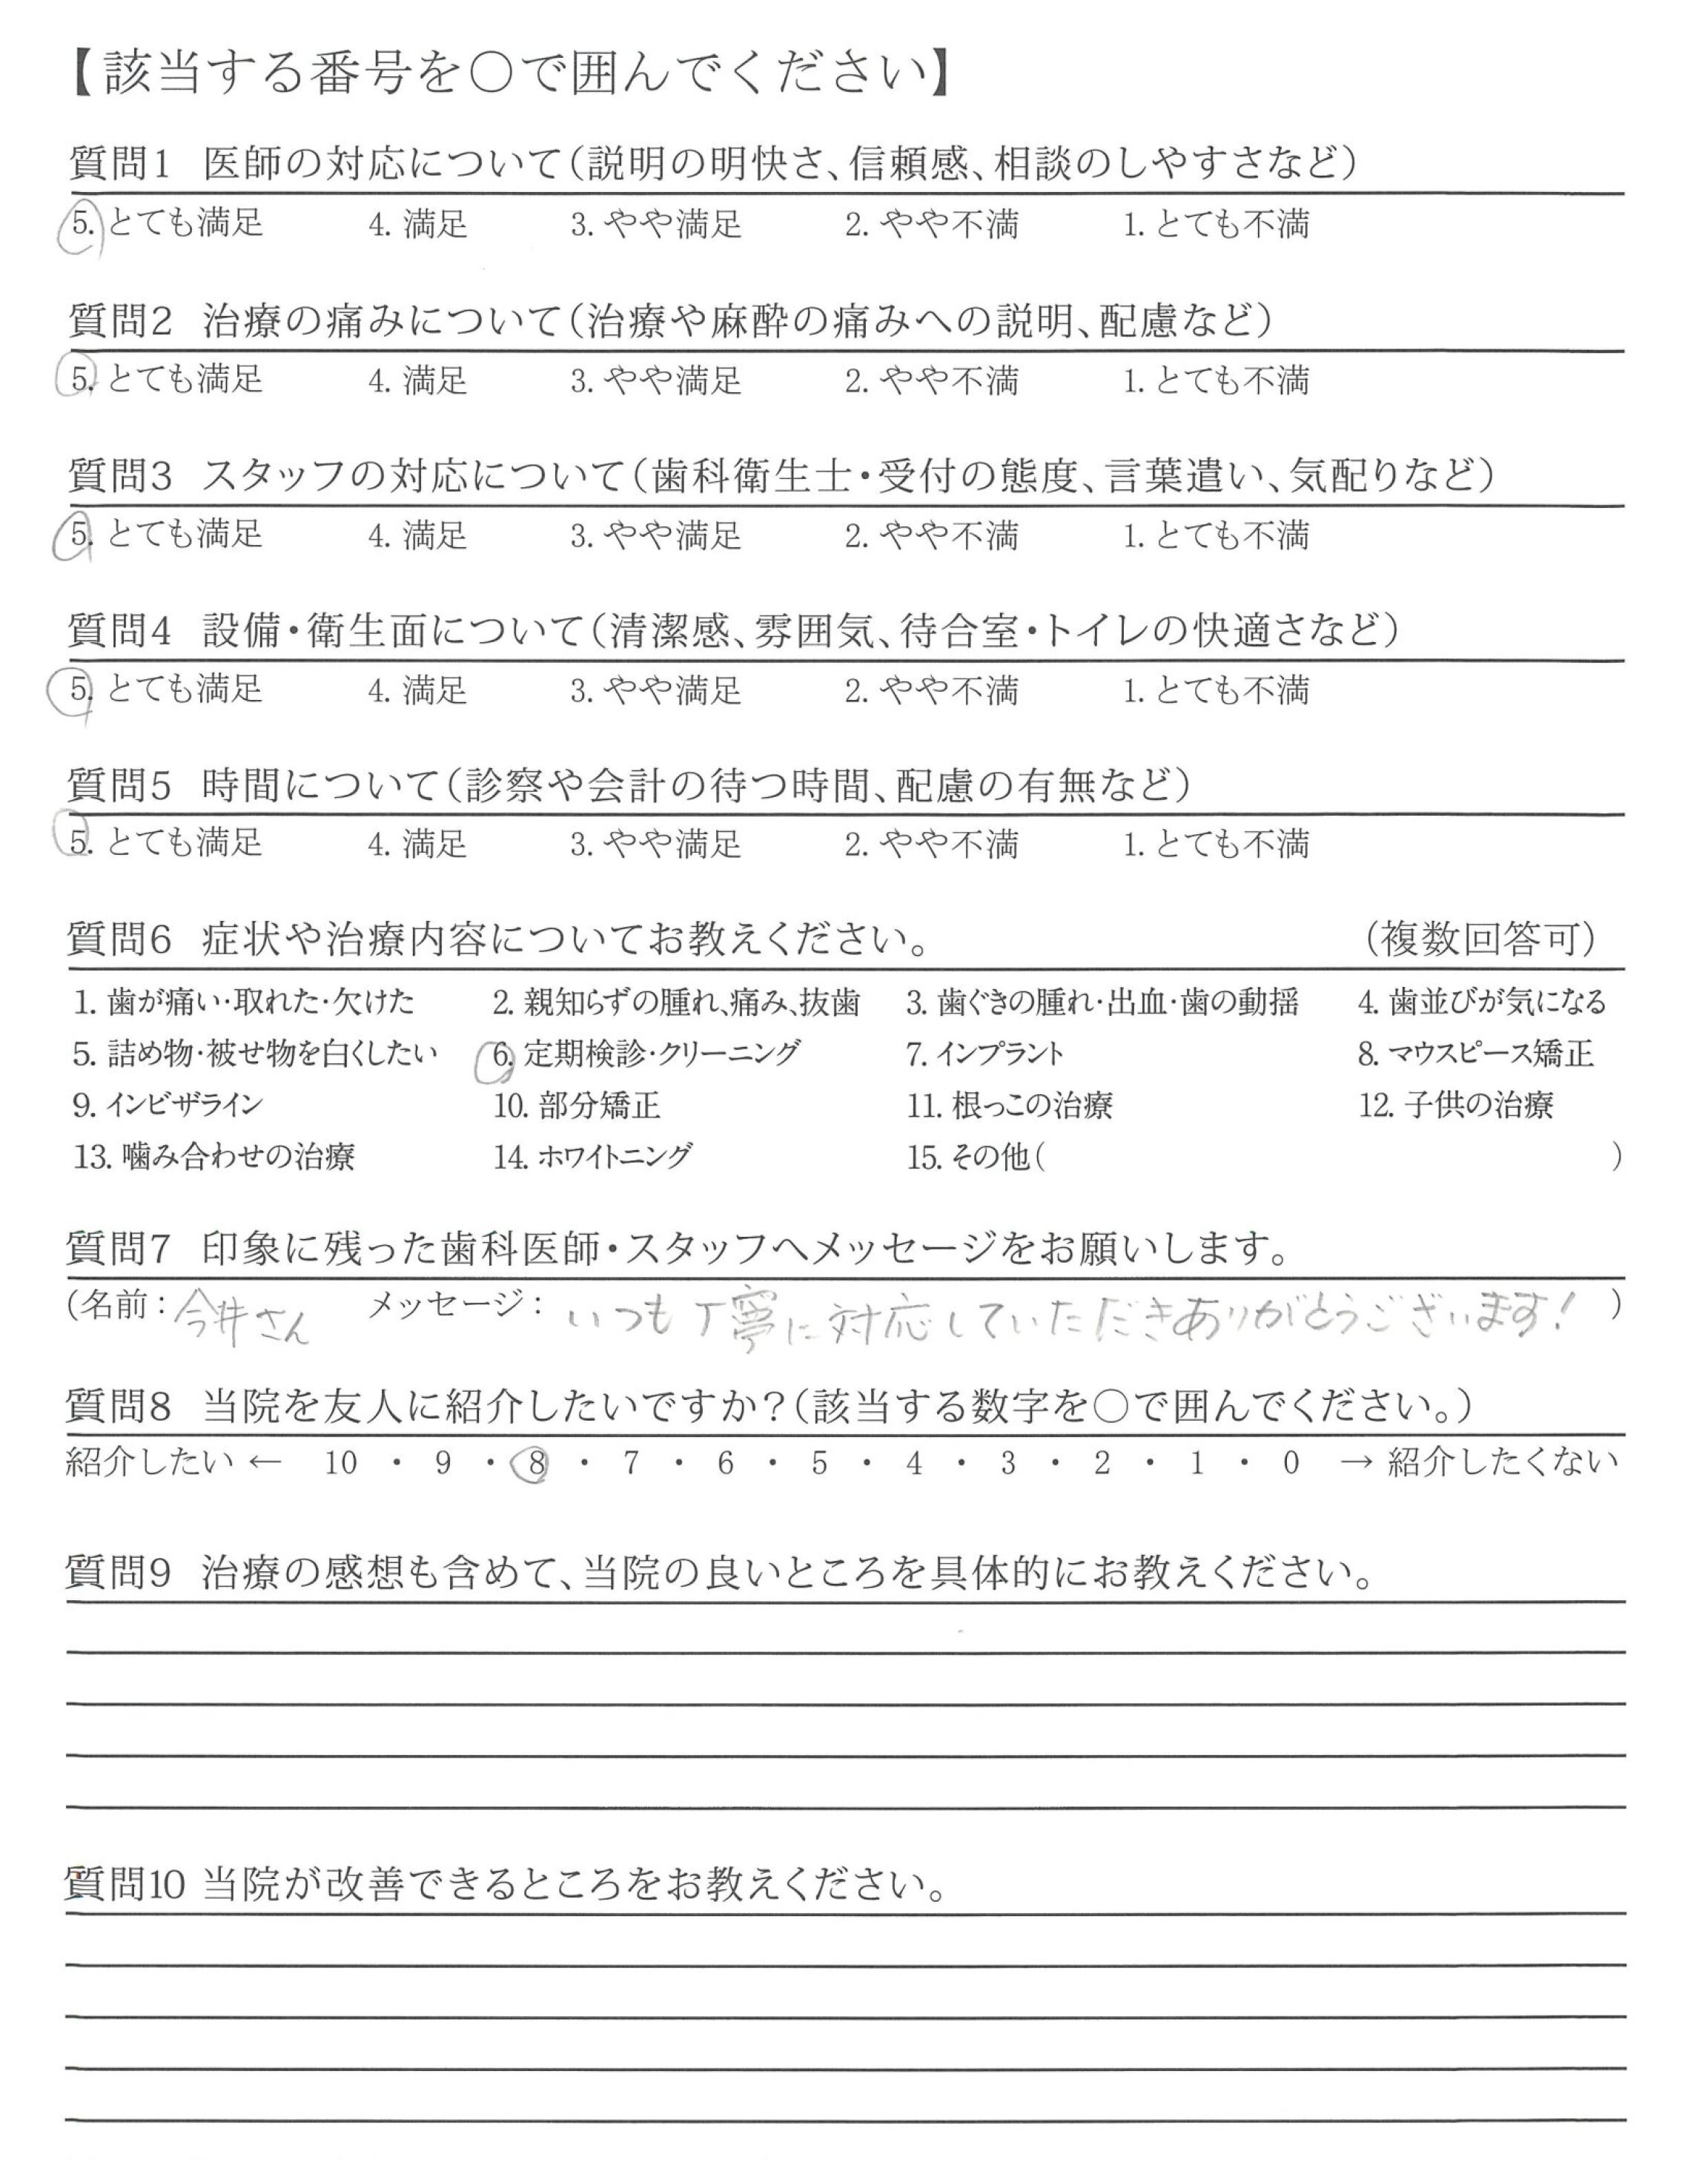 【該当する番号を〇で囲んでください】
質問1 医師の対応について(説明の明快さ、信頼感、相談のしやすさなど)
5. とても満足 4. 満足 3. やや満足 2. やや不満 1. とても不満
質問2 治療の痛みについて(治療や麻酔の痛みへの説明、配慮など)
5. とても満足 4. 満足 3. やや満足 2. やや不満 1. とても不満
質問3 スタッフの対応について(歯科衛生士・受付の態度、言葉遣い、気配りなど)
5. とても満足 4. 満足 3. やや満足 2. やや不満 1. とても不満
質問4 設備・衛生面について(清潔感、雰囲気、待合室・トイレの快適さなど)
5. とても満足 4. 満足 3. やや満足 2. やや不満 1. とても不満
質問5 時間について(診察や会計の待つ時間、配慮の有無など)
5. とても満足 4. 満足 3. やや満足 2. やや不満 1. とても不満
質問6 症状や治療内容についてお教えください。 (複数回答可)
1. 歯が痛い・取れた・欠けた 2. 親知らずの腫れ、痛み、抜歯 3. 歯ぐきの腫れ・出血・歯の動揺 4. 歯並びが気になる
5. 詰め物・被せ物を白くしたい 6. 定期検診・クリーニング 7. インプラント 8. マウスピース矯正
9. インビザライン 10. 部分矯正 11. 根っこの治療 12. 子供の治療
13. 噛み合わせの治療 14. ホワイトニング 15. その他( )
質問7 印象に残った歯科医師・スタッフへメッセージをお願いします。
(名前:今井さん メッセージ:いつも丁寧に対応していただきありがとうございます! )
質問8 当院を友人に紹介したいですか?(該当する数字を〇で囲んでください。)
紹介したい ← 10 ・ 9 ・ 8 ・ 7 ・ 6 ・ 5 ・ 4 ・ 3 ・ 2 ・ 1 ・ 0 → 紹介したくない
質問9 治療の感想も含めて、当院の良いところを具体的にお教えください。
質問10 当院が改善できるところをお教えください。